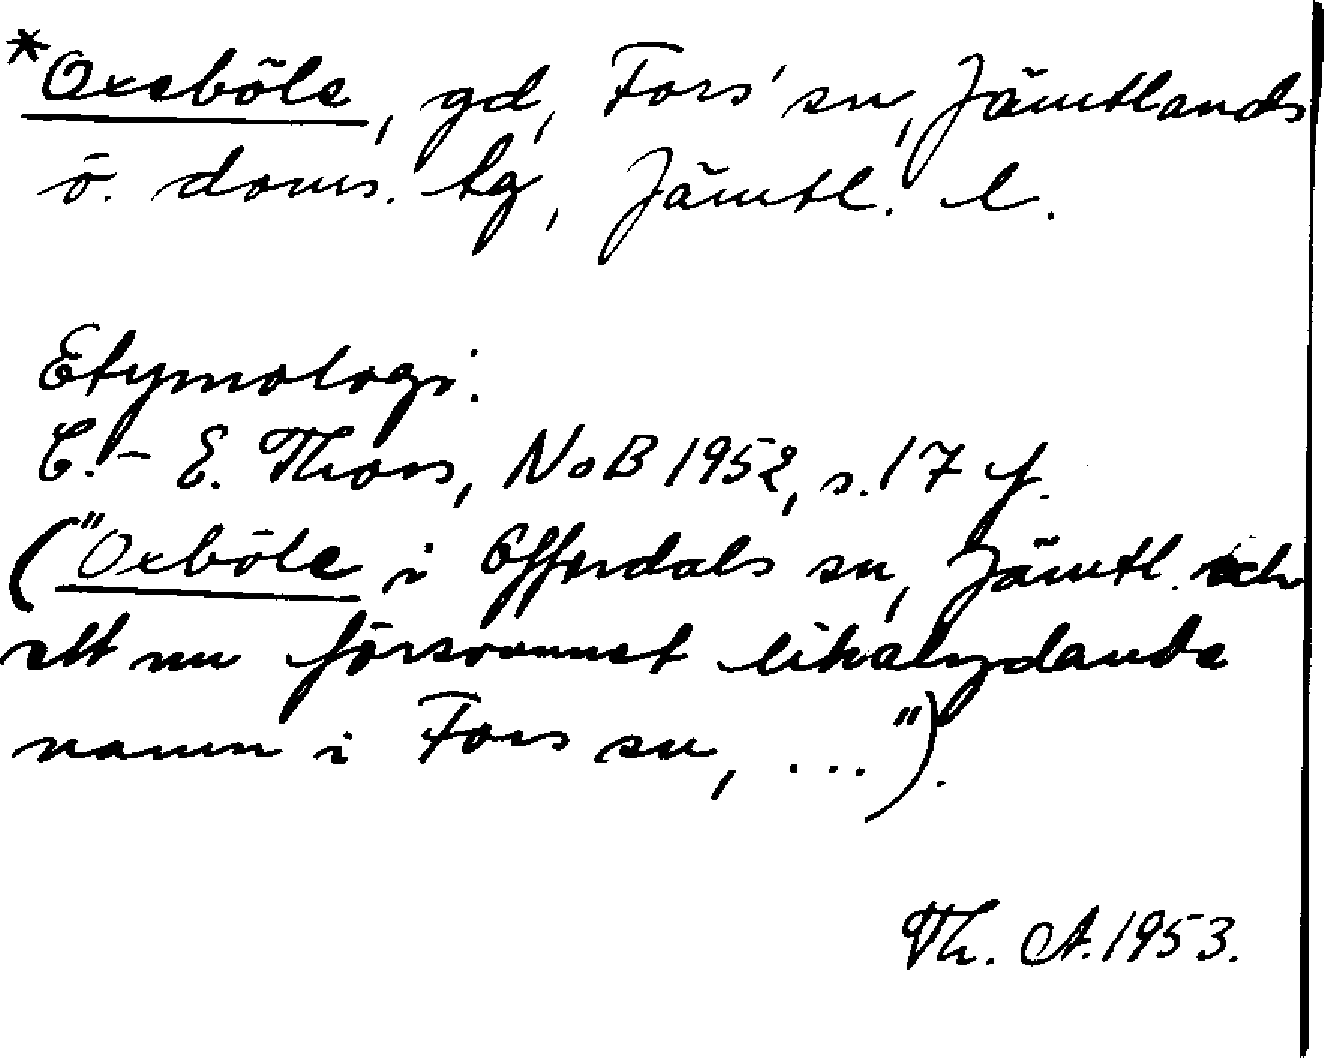 *Oxeböle, gd, Fors' sn, Jämtlands
ö. doms. tg, Jämtl. l.
Etymologi:
C.-E. Thors, NoB 1952, s. 17 f.
("Oxböle i Offerdals sn, Jämtl. och
ett nu försvunnet likalydande
namn i Fors sn, ...").
Th. A. 1953.